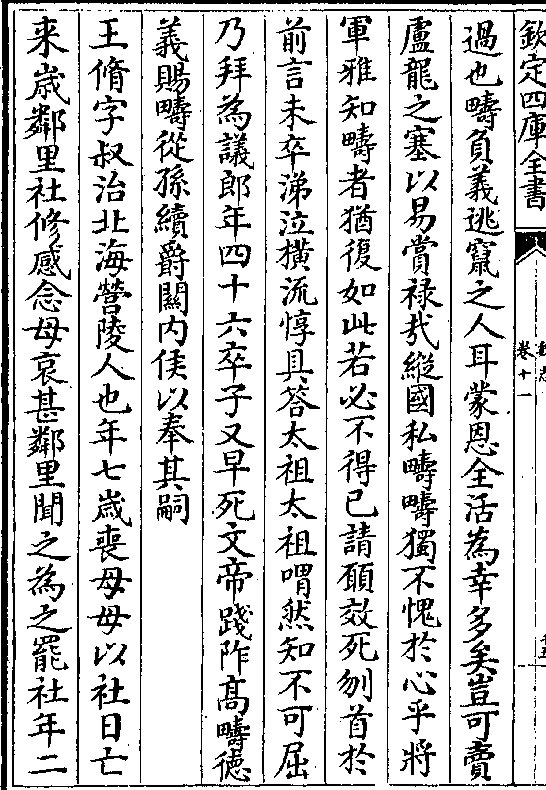 欽定四庫全書
魏志
卷十一
過也疇負義逃竄之人耳蒙恩全活為幸多矣豈可賣
盧龍之塞以易賞禄㢤縱國私疇疇獨不愧於心乎將
軍雅知疇者猶復如此若必不得已請願效死刎首於
前言未卒涕泣橫流惇具答太祖太祖喟然知不可屈
乃拜為議郎年四十六卒子又早死文帝踐阼髙疇徳
義賜疇從孫續爵關内侯以奉其嗣
王脩字叔治北海營陵人也年七歳喪母母以社日亡
来歳鄰里社修感念母哀甚鄰里聞之為之罷社年二